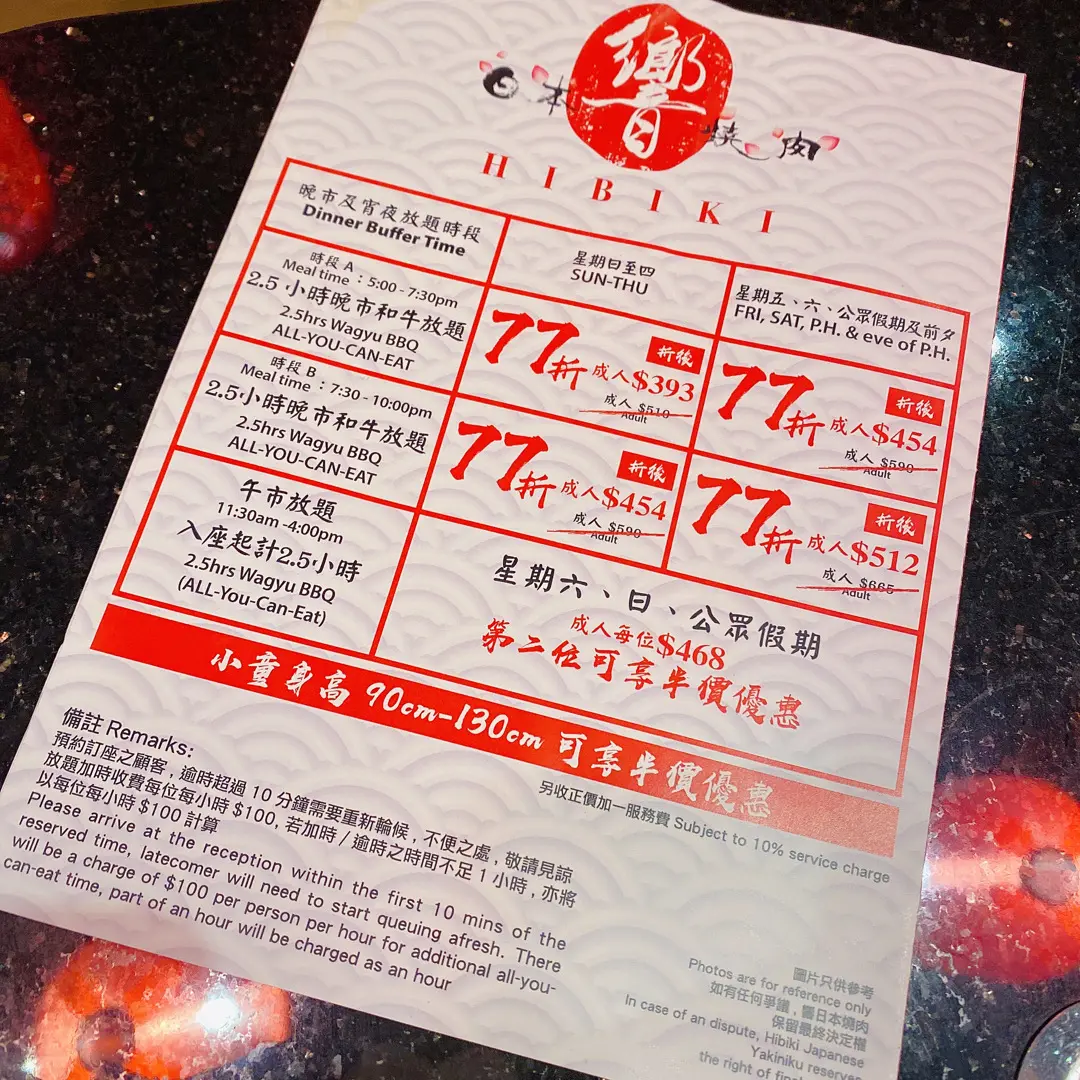 日本 響 燒肉
HIBIKI
晚市及宵夜放題時段
Dinner Buffer Time
星期日至四
SUN-THU
星期五、六、公眾假期及前夕
FRI, SAT, P.H. & eve of P.H.
時段 A
Meal time : 5:00 - 7:30pm
2.5 小時晚市和牛放題
2.5hrs Wagyu BBQ
ALL-YOU-CAN-EAT
77折
折後
成人$393
成人 $510
Adult
77折
折後
成人$454
成人 $590
Adult
時段 B
Meal time : 7:30 - 10:00pm
2.5小時晚市和牛放題
2.5hrs Wagyu BBQ
ALL-YOU-CAN-EAT
77折
折後
成人$454
成人 $590
Adult
77折
折後
成人$512
成人 $665
Adult
午市放題
11:30am -4:00pm
入座起計2.5小時
2.5hrs Wagyu BBQ
(ALL-You-Can-Eat)
星期六、日、公眾假期
成人每位$468
第二位可享半價優惠
小童身高 90cm-130cm 可享半價優惠
另收正價加一服務費 Subject to 10% service charge
備註 Remarks:
預約訂座之顧客，逾時超過 10 分鐘需要重新輪候，不便之處，敬請見諒
放題加時收費每位每小時 $100, 若加時 / 逾時之時間不足 1 小時，亦將
以每位每小時 $100 計算
Please arrive at the reception within the first 10 mins of the
reserved time, latecomer will need to start queuing afresh. There
will be a charge of $100 per person per hour for additional all-you-
can-eat time, part of an hour will be charged as an hour
圖片只供參考
Photos are for reference only
如有任何爭議，響日本燒肉
保留最終決定權
In case of an dispute, Hibiki Japanese
Yakiniku reserves
the right of